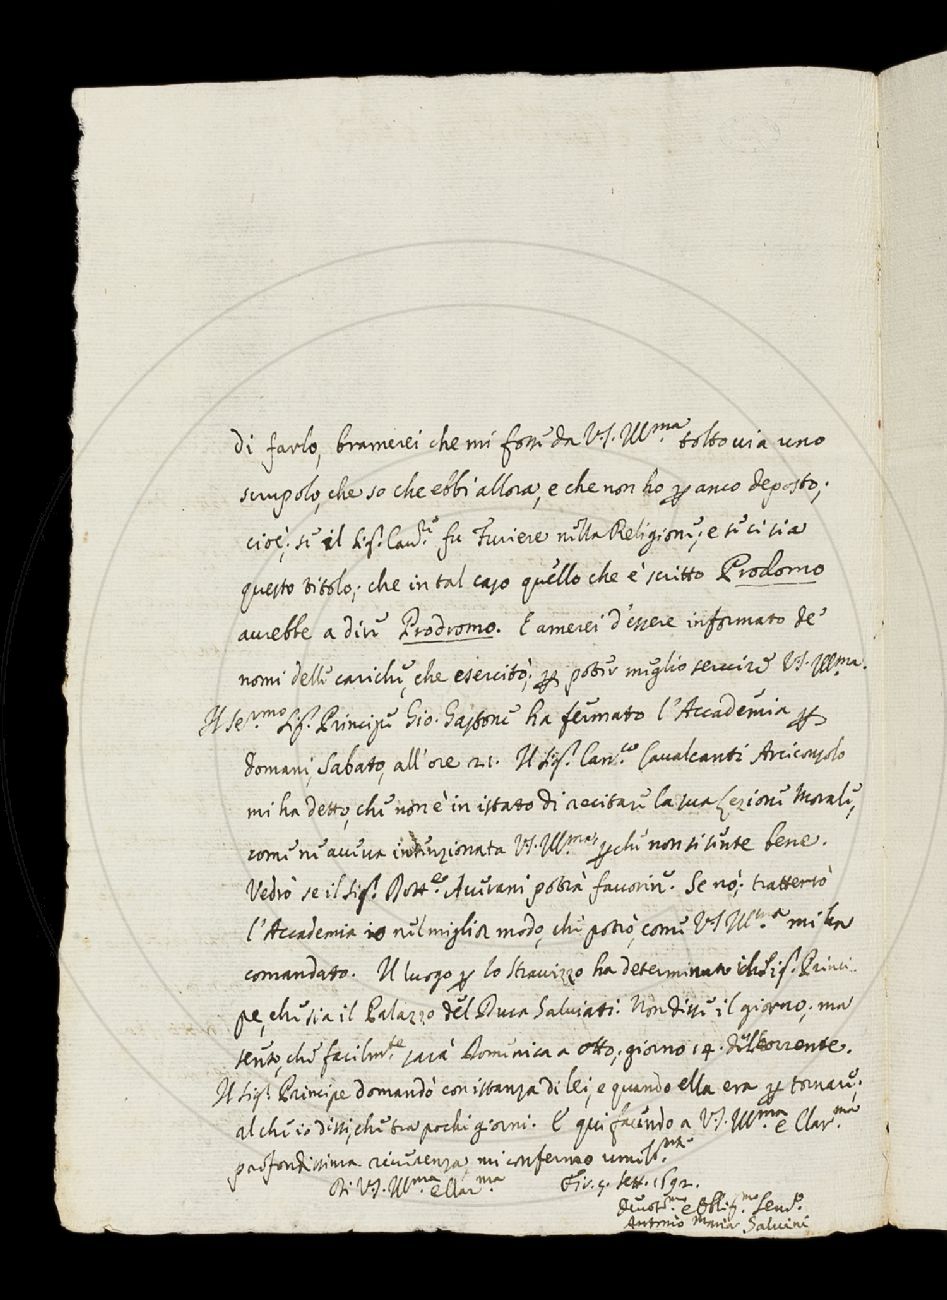 di farlo, bramerei che mi fosse da V.S. Ill.ma tolto via uno
scrupolo, che so che ebbi allora, e che non ho p anco deposto;
cioè; se il Sig. Cav.re fu Furiere nella Religione; e se ci sia
questo titolo; che in tal caso quello che è scritto Prodomo
avrebbe a dire Prodromo. E amerei d'essere informato de'
nomi delle cariche, che esercitò; p poter meglio servire V.S. Ill.ma.
Il Ser.mo Sig. Principe Gio. Gastone ha fermato l'Accademia p
domani, Sabato, all'ore 21. Il Sig. Can.co Cavalcanti Arciconsolo
mi ha detto, che non è in istato di recitare la sua Lezione Morale,
come ne aveva intenzionata V.S. Ill.ma; pche non si sente bene.
Vedrò se il Sig. Dott.re Averani potrà favorire. Se nò; tratterrò
l'Accademia io nel miglior modo, che potrò, come V.S. Ill.ma mi ha
comandato. Il luogo p lo Stravizzo ha determinato il Sig. Princi-
pe, che sia il Palazzo del Duca Salviati. Non disse il giorno; ma
sento, che facilm.te sarà Domenica a otto, giorno 14. del corrente.
Il Sig. Principe domandò con istanza di lei, e quando ella era p tornare;
al che io dissi, che tra pochi giorni. E qui facendo a V.S. Ill.ma e Clar.ma
profondissima reverenza, mi confermo umilis.mte
Di V.S. Ill.ma e Clar.ma Fir. 5. Sett. 1692.
Devot.mo e Oblig.mo Serv.e
Antonio Maria Salvini